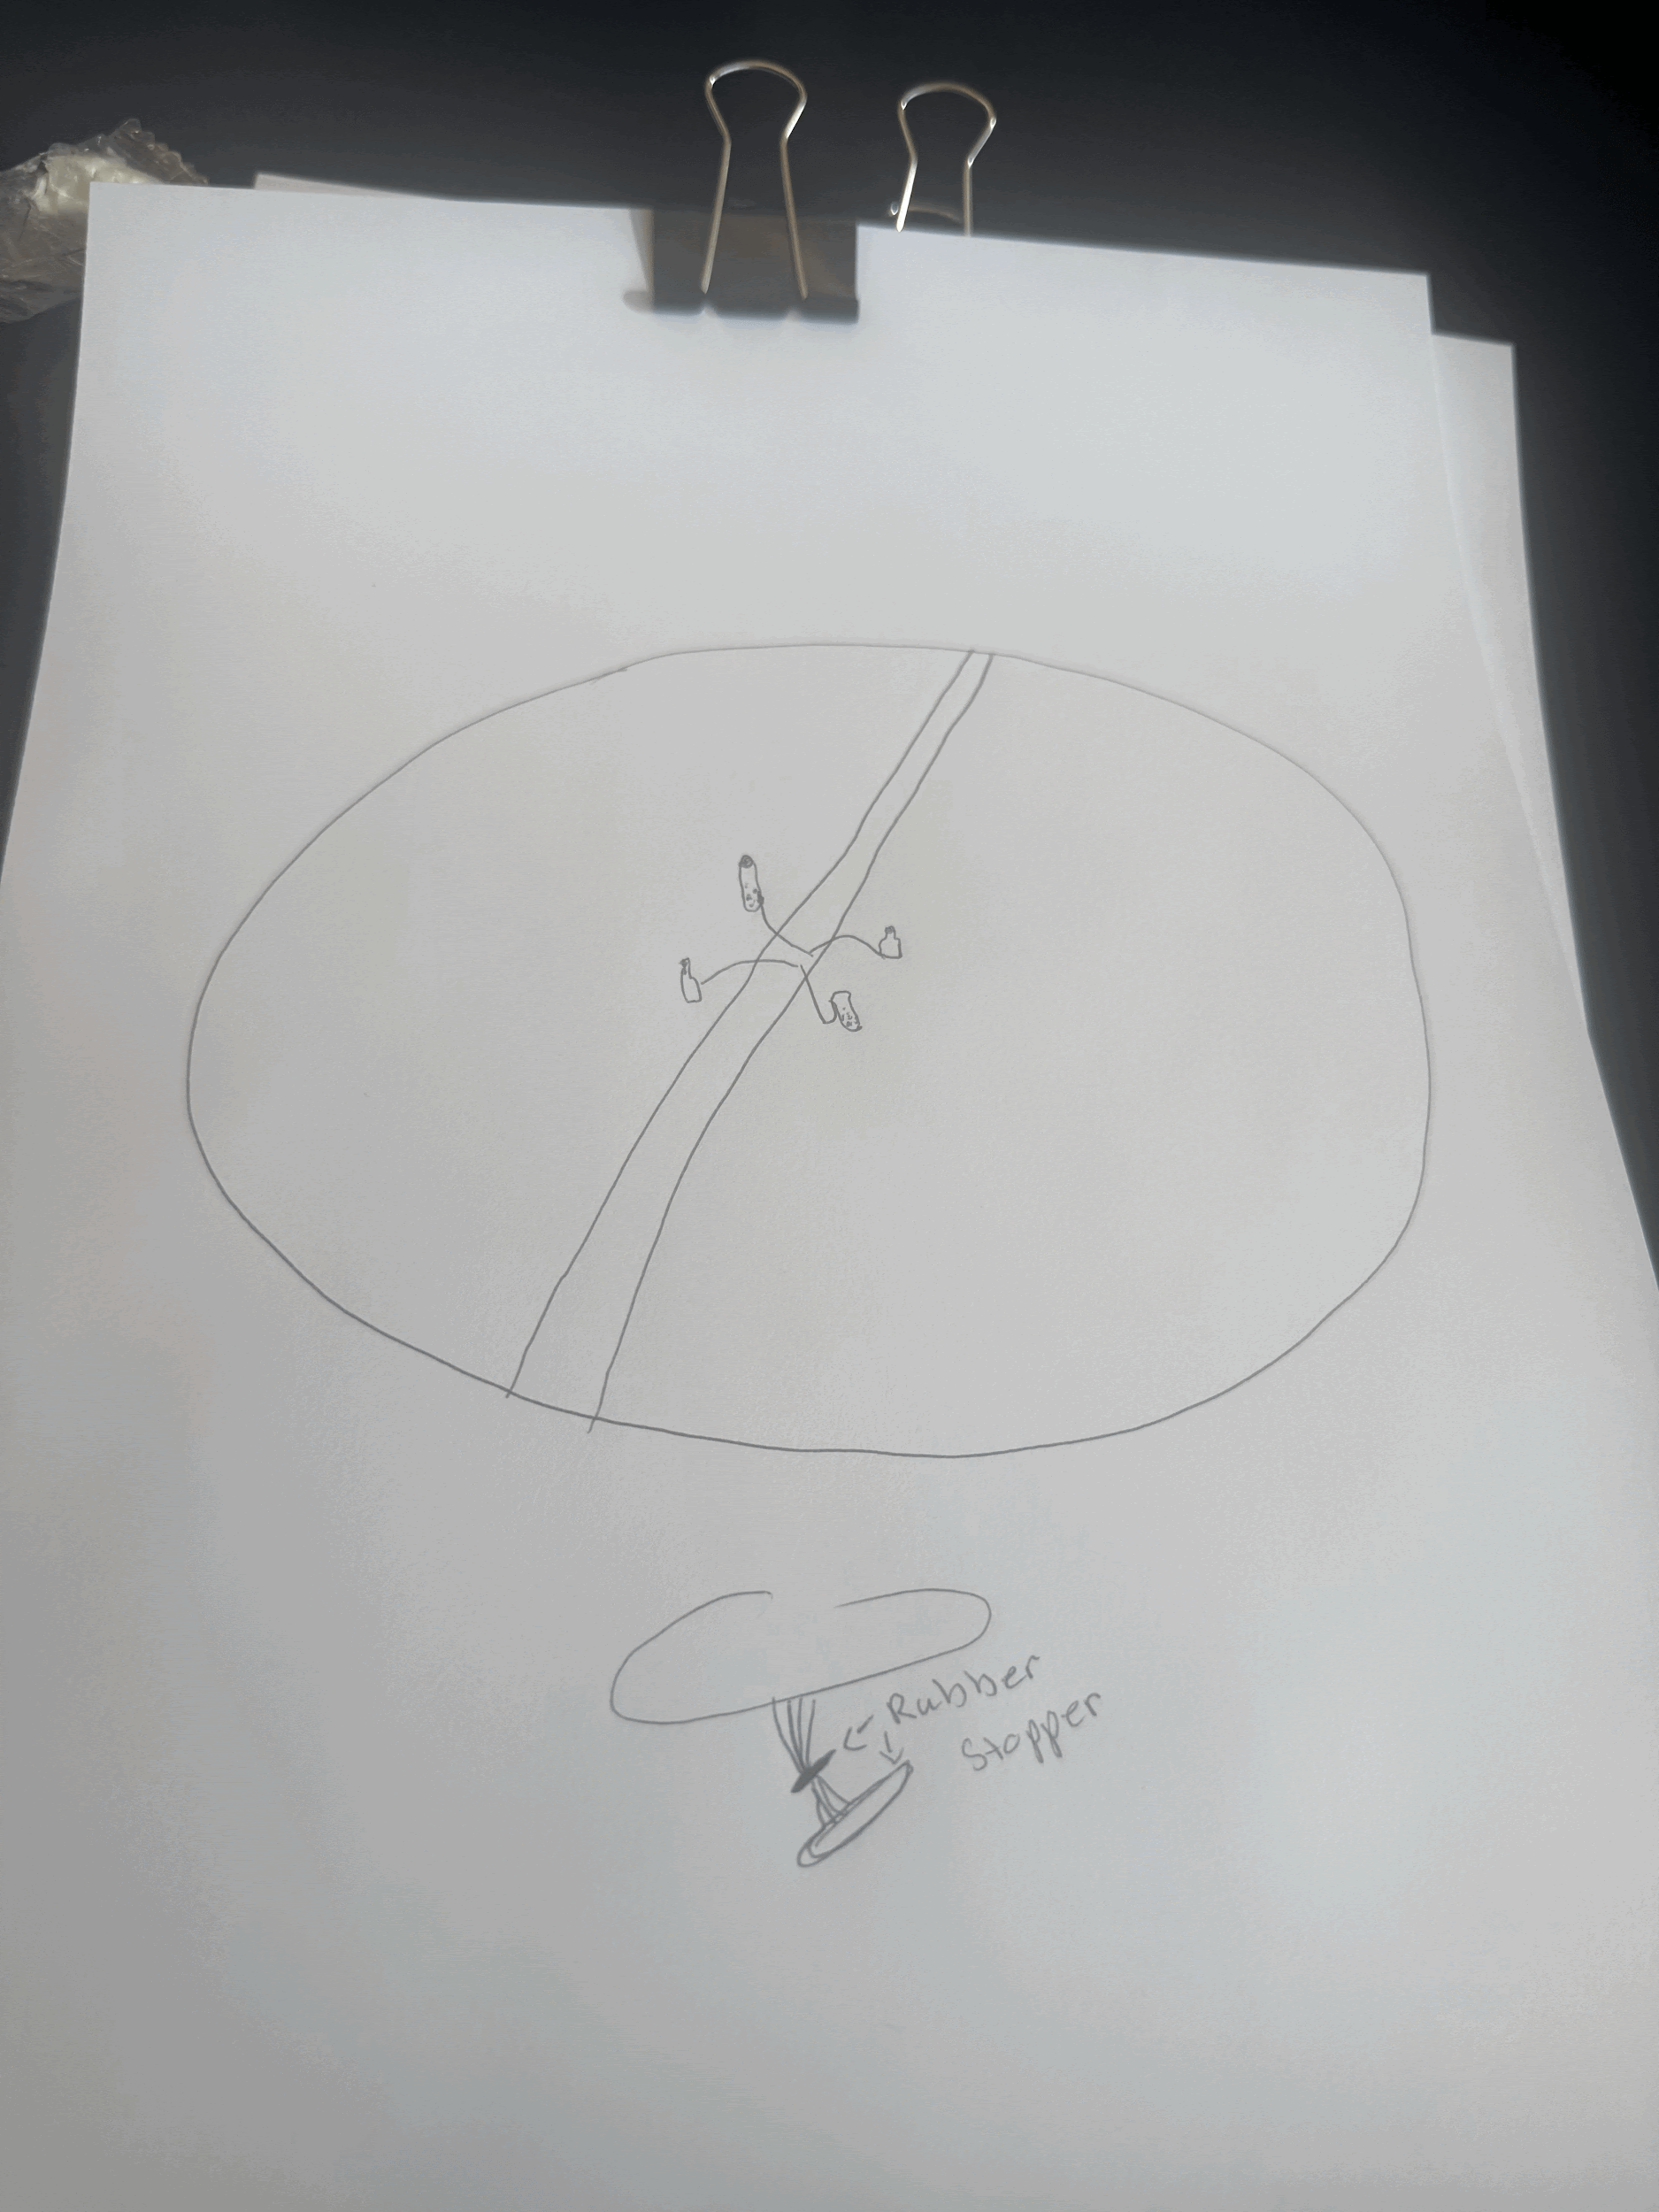 Rubber
Stopper